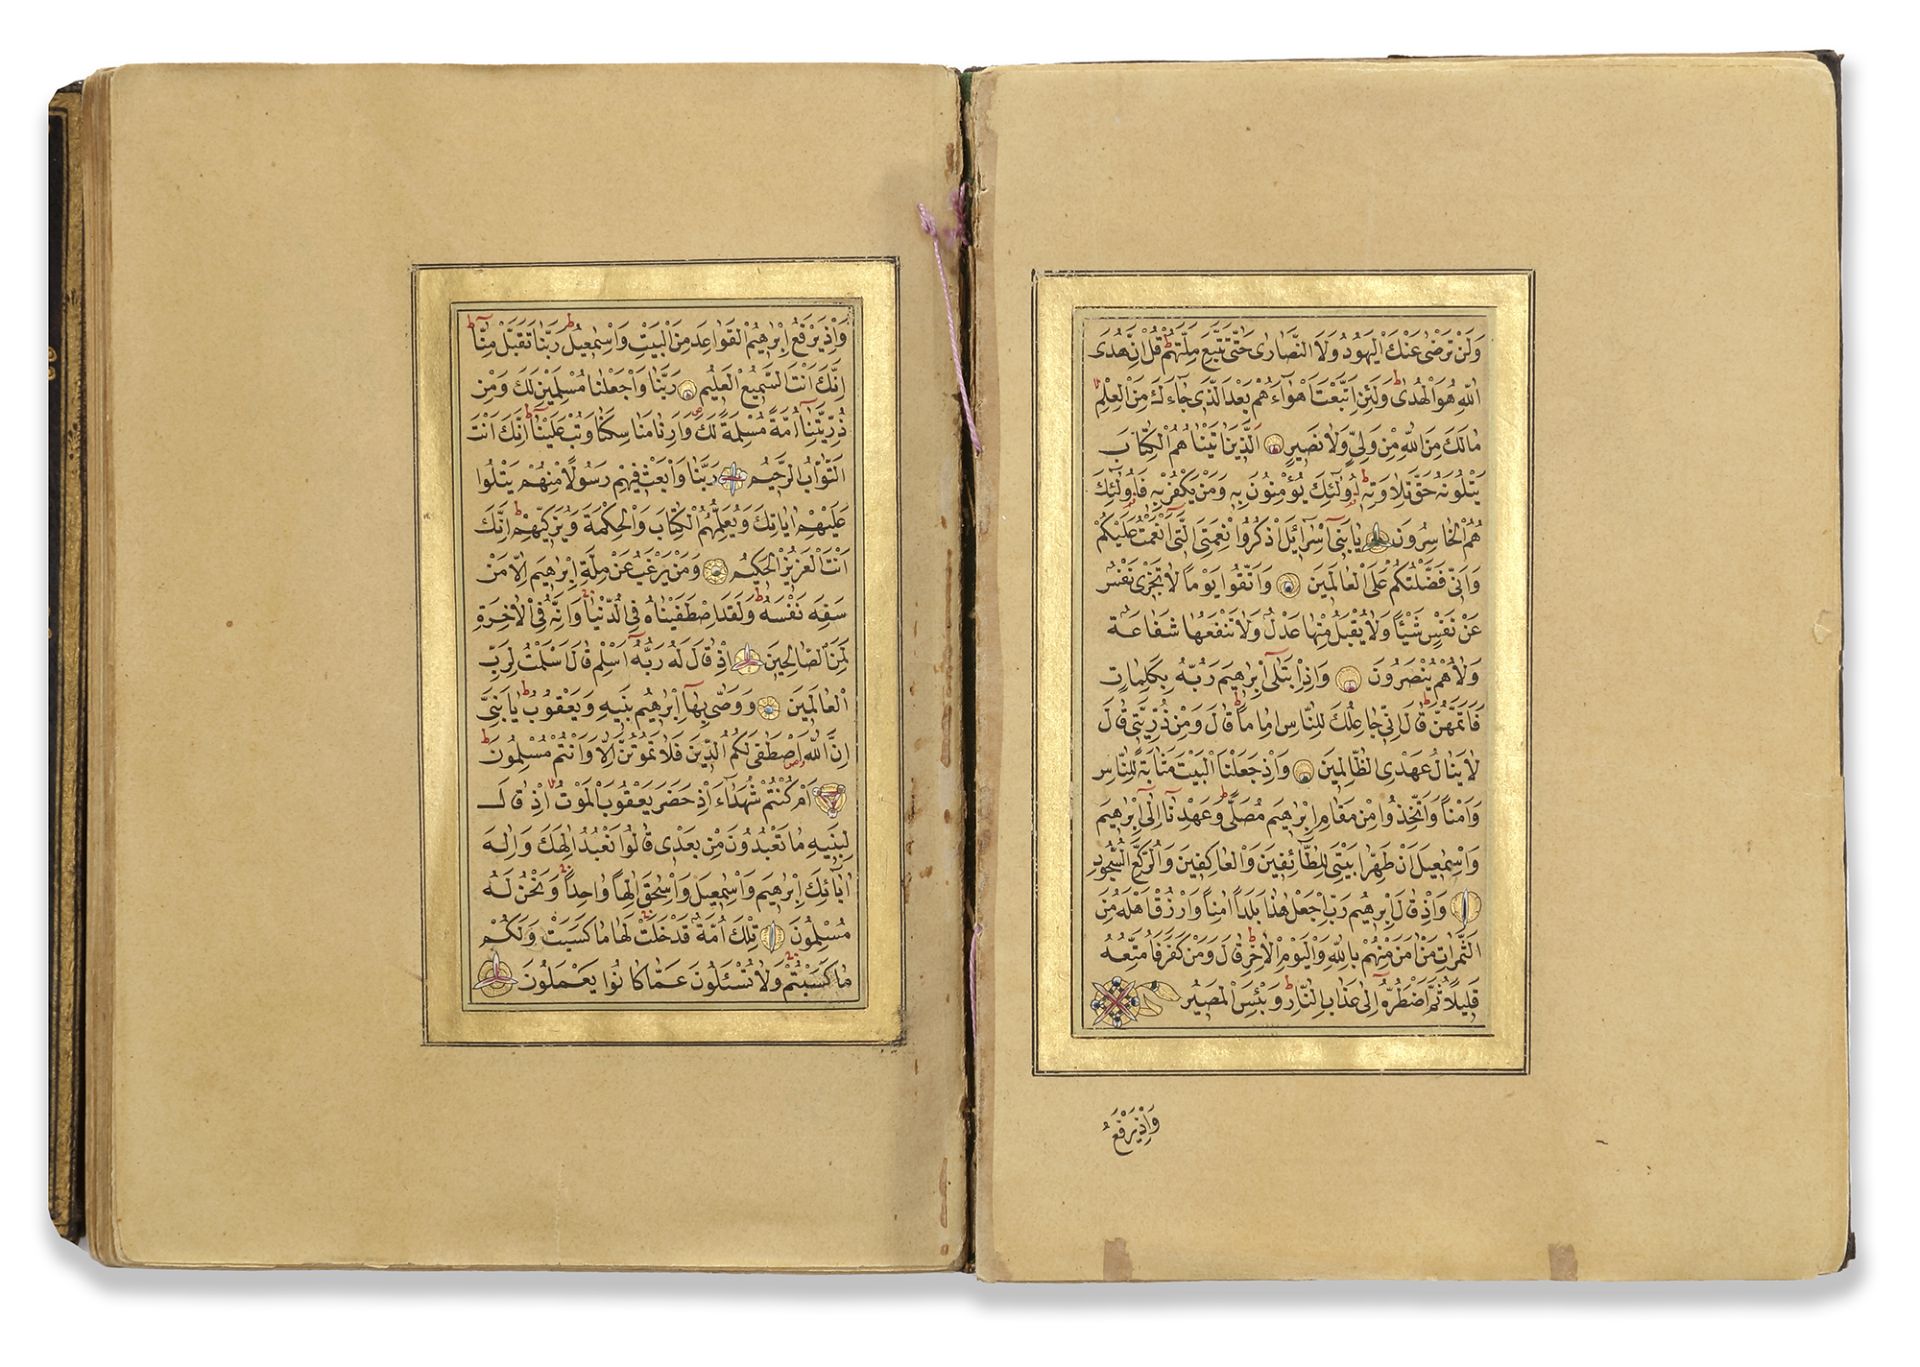 وَلَنْ تَرْضٰى عَنْكَ الْيَهُودُ وَلَا النَّصَارٰى حَتّٰى تَتَّبِعَ مِلَّتَهُمْ ط قُلْ اِنَّ هُدَى
اللّٰهِ هُوَ الْهُدٰى ط وَلَئِنِ اتَّبَعْتَ اَهْوَٓاءَهُمْ بَعْدَ الَّذِى جَٓاءَكَ مِنَ الْعِلْمِ لا
مَالَكَ مِنَ اللّٰهِ مِنْ وَلِيٍّ وَلَا نَصِيرٍ اَلَّذِينَ اٰتَيْنَاهُمُ الْكِتَابَ
يَتْلُونَهُ حَقَّ تِلَاوَتِهِ ط اُولٰٓئِكَ يُؤْمِنُونَ بِهِ وَمَنْ يَكْفُرْ بِهِ فَاُولٰٓئِكَ
هُمُ الْخَاسِرُونَ يَا بَنِٓى اِسْرَٓائِلَ اذْكُرُوا نِعْمَتِىَ الَّتِٓى اَنْعَمْتُ عَلَيْكُمْ
وَاَنِّى فَضَّلْتُكُمْ عَلَى الْعَالَمِينَ وَاتَّقُوا يَوْماً لَا تَجْزِى نَفْسٌ
عَنْ نَفْسٍ شَيْئاً وَلَا يُقْبَلُ مِنْهَا عَدْلٌ وَلَا تَنْفَعُهَا شَفَاعَةٌ
وَلَا هُمْ يُنْصَرُونَ وَاِذِ ابْتَلٰٓى اِبْرٰهِيمَ رَبُّهُ بِكَلِمَاتٍ
فَاَتَمَّهُنَّ ط قَالَ اِنِّى جَاعِلُكَ لِلنَّاسِ اِمَاماً ط قَالَ وَمِنْ ذُرِّيَّتِى قَالَ
لَا يَنَالُ عَهْدِى الظَّالِمِينَ وَاِذْ جَعَلْنَا الْبَيْتَ مَثَابَةً لِلنَّاسِ
وَاَمْناً وَاتَّخِذُوا مِنْ مَقَامِ اِبْرٰهِيمَ مُصَلًّى ط وَعَهِدْنَٓا اِلٰٓى اِبْرٰهِيمَ
وَاِسْمٰعِيلَ اَنْ طَهِّرَا بَيْتِىَ لِلطَّٓائِفِينَ وَالْعَاكِفِينَ وَالرُّكَّعِ السُّجُودِ
وَاِذْ قَالَ اِبْرٰهِيمُ رَبِّ اجْعَلْ هٰذَا بَلَداً اٰمِناً وَارْزُقْ اَهْلَهُ مِنَ
الثَّمَرَاتِ مَنْ اٰمَنَ مِنْهُمْ بِاللّٰهِ وَالْيَوْمِ الْاٰخِرِ ط قَالَ وَمَنْ كَفَرَ فَاُمَتِّعُهُ
قَلِيلاً ثُمَّ اَضْطَرُّهُٓ اِلٰى عَذَابِ النَّارِ ط وَبِئْسَ الْمَصِيرُ
وَاِذْ يَرْفَعُ
وَاِذْ يَرْفَعُ اِبْرٰهِيمُ الْقَوَاعِدَ مِنَ الْبَيْتِ وَاِسْمٰعِيلُ ط رَبَّنَا تَقَبَّلْ مِنَّا ط
اِنَّكَ اَنْتَ السَّمِيعُ الْعَلِيمُ رَبَّنَا وَاجْعَلْنَا مُسْلِمَيْنِ لَكَ وَمِنْ
ذُرِّيَّتِنَٓا اُمَّةً مُسْلِمَةً لَكَ وَاَرِنَا مَنَاسِكَنَا وَتُبْ عَلَيْنَا اِنَّكَ اَنْتَ
التَّوَّابُ الرَّحِيمُ رَبَّنَا وَابْعَثْ فِيهِمْ رَسُولاً مِنْهُمْ يَتْلُوا
عَلَيْهِمْ اٰيَاتِكَ وَيُعَلِّمُهُمُ الْكِتَابَ وَالْحِكْمَةَ وَيُزَكِّيهِمْ ط اِنَّكَ
اَنْتَ الْعَزِيزُ الْحَكِيمُ وَمَنْ يَرْغَبُ عَنْ مِلَّةِ اِبْرٰهِيمَ اِلَّا مَنْ
سَفِهَ نَفْسَهُ ط وَلَقَدِ اصْطَفَيْنَاهُ فِى الدُّنْيَا وَاِنَّهُ فِى الْاٰخِرَةِ
لَمِنَ الصَّالِحِينَ اِذْ قَالَ لَهُ رَبُّهُٓ اَسْلِمْ قَالَ اَسْلَمْتُ لِرَبِّ
الْعَالَمِينَ وَوَصّٰى بِهَٓا اِبْرٰهِيمُ بَنِيهِ وَيَعْقُوبُ ط يَا بَنِىَّ
اِنَّ اللّٰهَ اصْطَفٰى لَكُمُ الدِّينَ فَلَا تَمُوتُنَّ اِلَّا وَاَنْتُمْ مُسْلِمُونَ ط
اَمْ كُنْتُمْ شُهَدَٓاءَ اِذْ حَضَرَ يَعْقُوبَ الْمَوْتُ لا اِذْ قَالَ
لِبَنِيهِ مَا تَعْبُدُونَ مِنْ بَعْدِى قَالُوا نَعْبُدُ اِلٰهَكَ وَاِلٰهَ
اٰبَٓائِكَ اِبْرٰهِيمَ وَاِسْمٰعِيلَ وَاِسْحٰقَ اِلٰهاً وَاحِداً وَنَحْنُ لَهُ
مُسْلِمُونَ تِلْكَ اُمَّةٌ قَدْ خَلَتْ لَهَا مَا كَسَبَتْ وَلَكُمْ
مَا كَسَبْتُمْ وَلَا تُسْئَلُونَ عَمَّا كَانُوا يَعْمَلُونَ